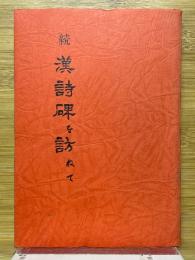 続
漢詩碑を訪ねて